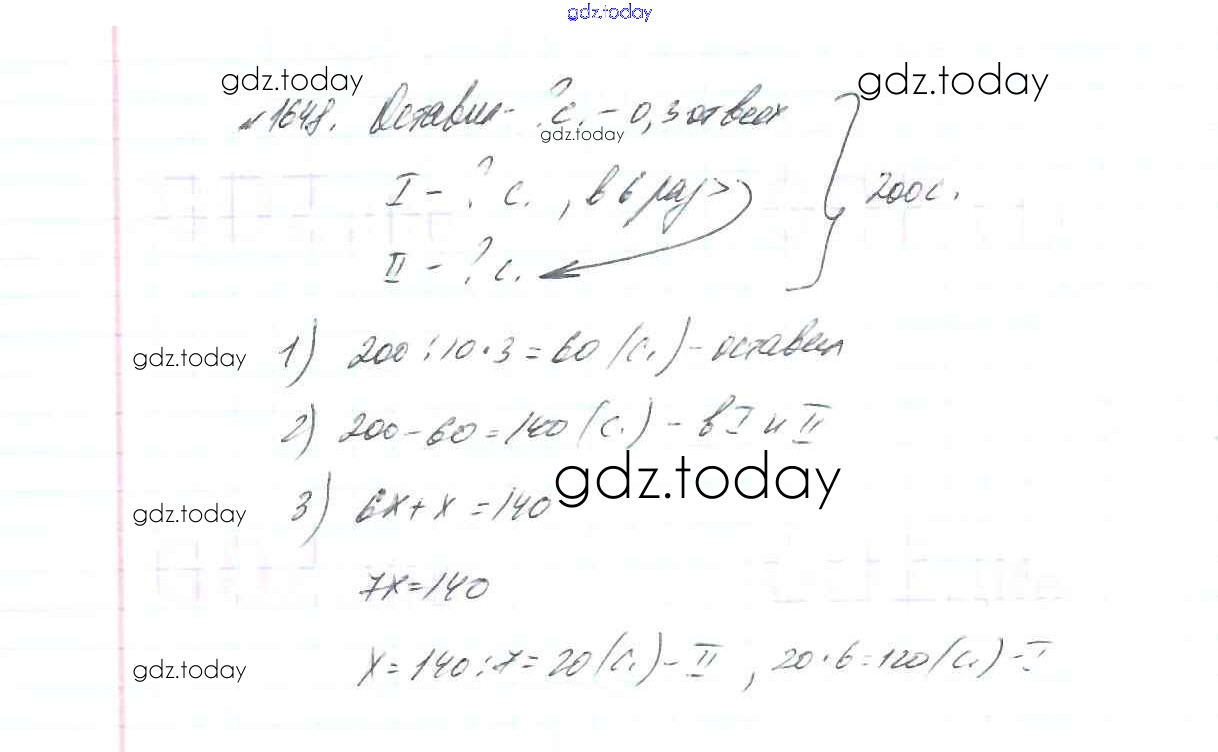 gdz.today
gdz.today
gdz.today
№1648. Оставил - ? с. - 0,3 от всех
gdz.today
I - ? с., в 6 раз >
200 с.
II - ? с.
gdz.today
1) 200 : 10 · 3 = 60 (с.) - оставил
2) 200 - 60 = 140 (с.) - в I и II
gdz.today
gdz.today
3) 6x + x = 140
7x = 140
gdz.today
x = 140 : 7 = 20 (с.) - II, 20 · 6 = 120 (с.) - I